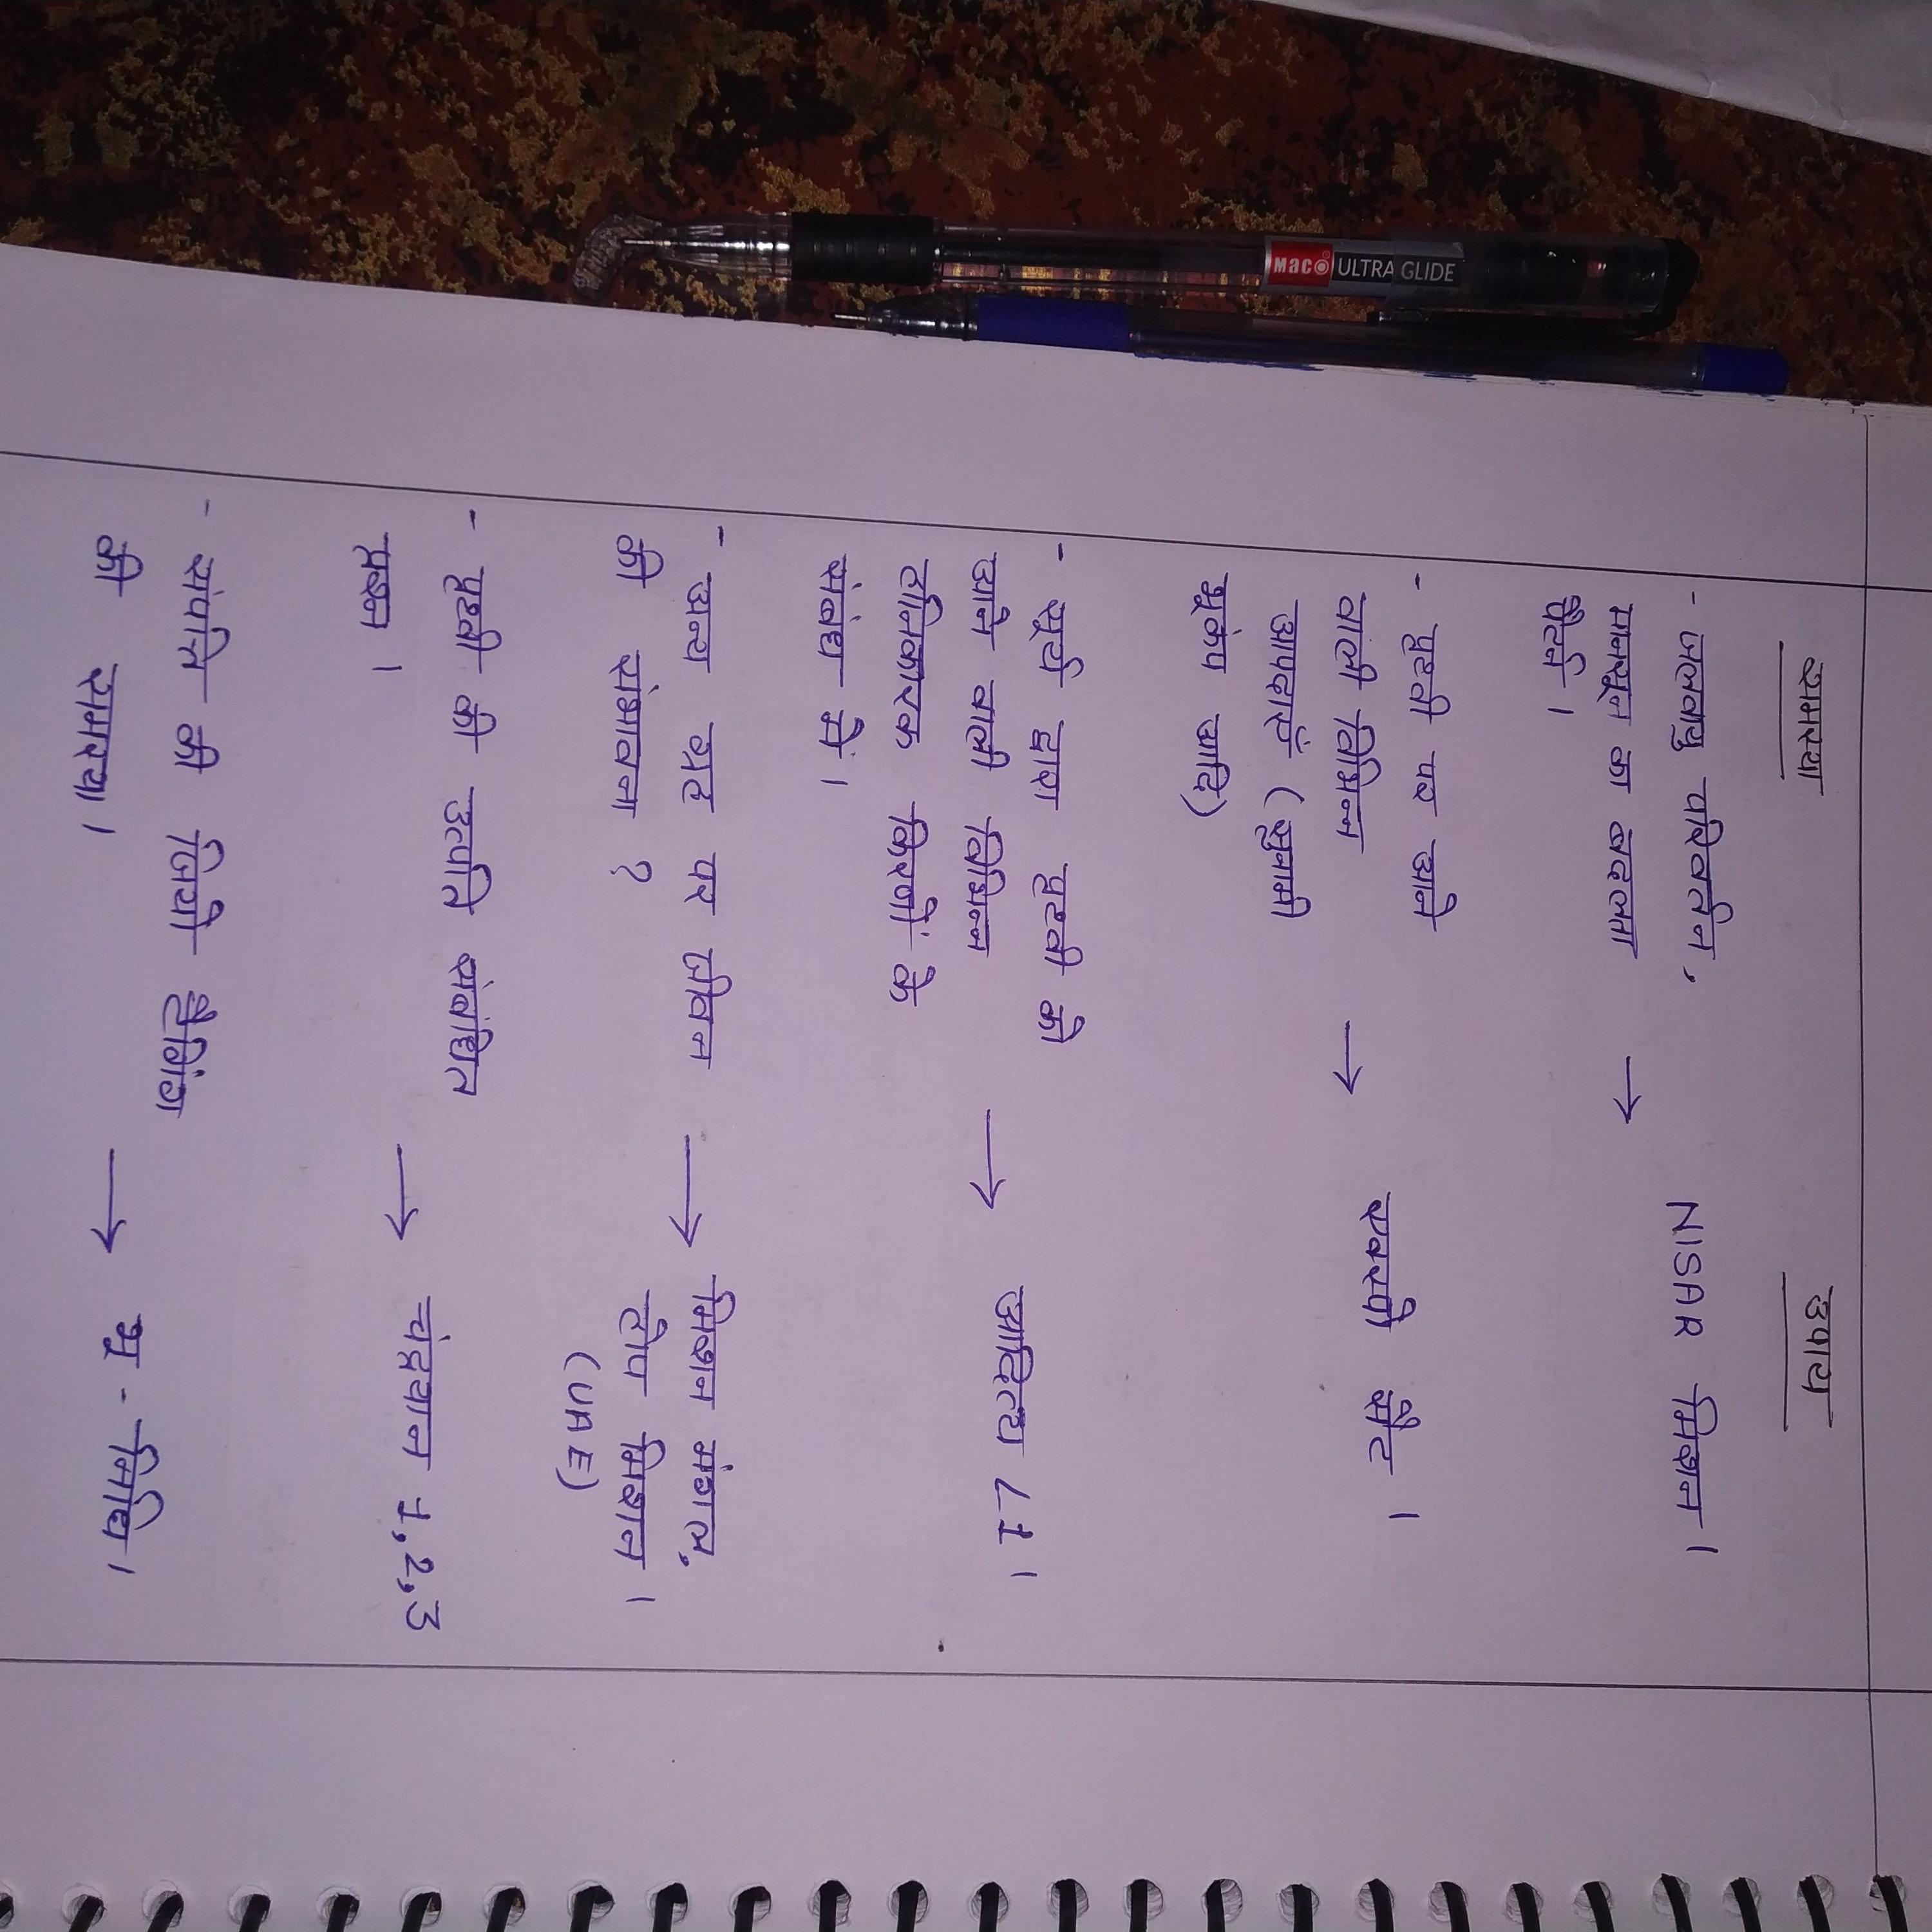 समस्या
उपाय
- जलवायु परिवर्तन,
मानसून का बदलता
पैटर्न।
→ NISAR मिशन।
- पृथ्वी पर आने
वाली विभिन्न
आपदाएँ (सुनामी
भूकंप आदि)
→ एक्सपो सैट।
- सूर्य द्वारा पृथ्वी को
आने वाली विभिन्न
हानिकारक किरणों के
संबंध में।
→ आदित्य L1।
- अन्य ग्रह पर जीवन
की संभावना ?
→ मिशन मंगल,
होप मिशन।
(UAE)
- पृथ्वी की उत्पत्ति संबंधित
प्रश्न।
→ चंद्रयान 1,2,3
- संपत्ति की जियो टैगिंग
की समस्या।
→ भू-निधि।
maco ULTRA GLIDE